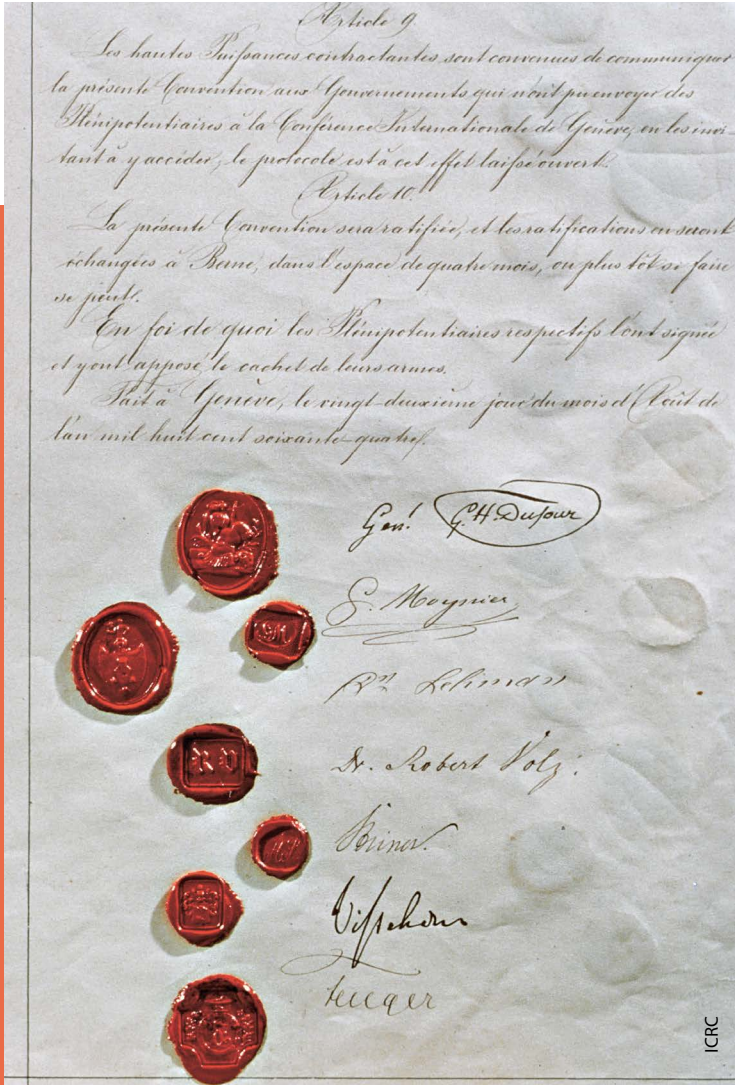 Article 9.
Les hautes Puissances contractantes sont convenues de communiquer
la présente Convention aux Gouvernements qui n'ont pu envoyer des
Plénipotentiaires à la Conférence Internationale de Genève, en les invi-
tant à y accéder, le protocole est à cet effet laissé ouvert.
Article 10.
La présente Convention sera ratifiée, et les ratifications en seront
échangées à Berne, dans l'espace de quatre mois, ou plus tôt si faire
se peut.
En foi de quoi les Plénipotentiaires respectifs l'ont signée
et y ont apposé le cachet de leurs armes.
Fait à Genève, le vingt-deuxième jour du mois d'Août de
l'an mil huit cent soixante-quatre.
Genl. G. H. Dufour
G. Moynier
Lehmann
RV
Dr. Robert Volz.
Steiner.
Visschers
ICRC